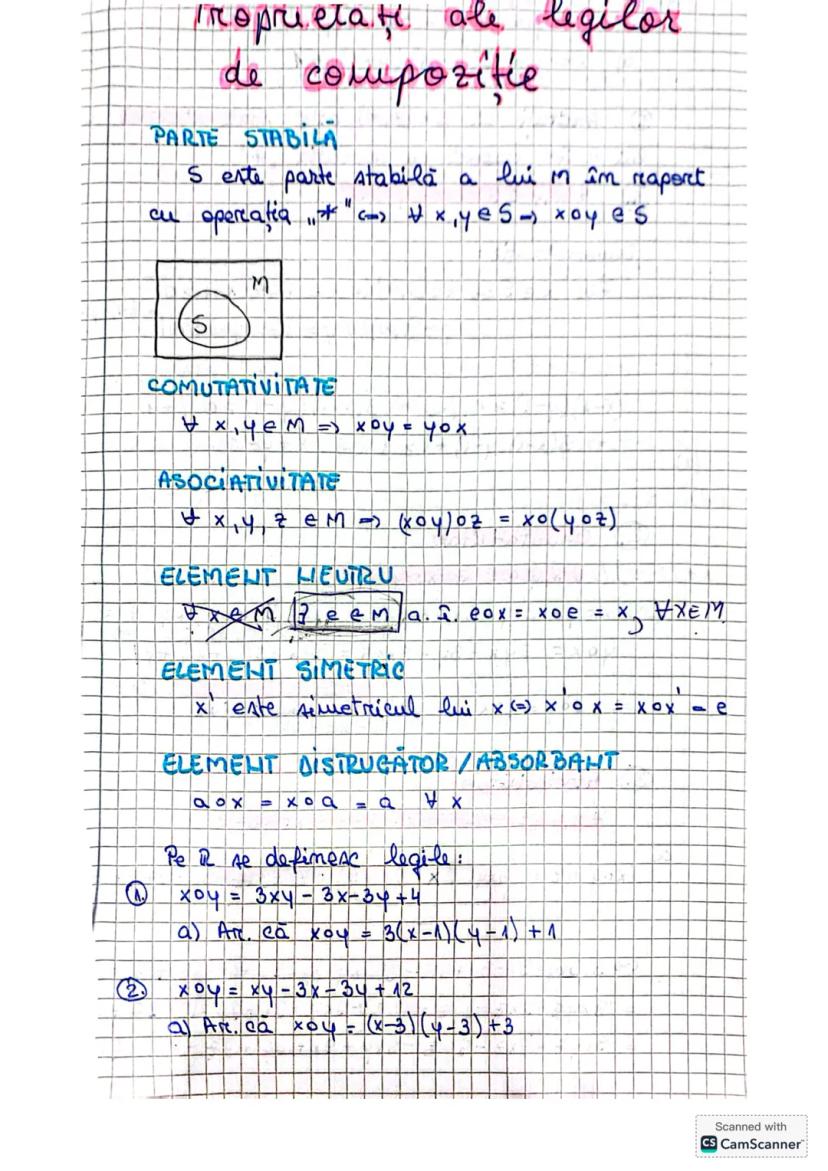 Proprietăți ale legilor
de compoziție
PARTE STABILĂ
S este parte stabilă a lui M în raport
cu operația „*" <=> ∀ x,y ∈ S => x∘y ∈ S
M
S
COMUTATIVITATE
∀ x,y ∈ M => x∘y = y∘x
ASOCIATIVITATE
∀ x,y,z ∈ M => (x∘y)∘z = x∘(y∘z)
ELEMENT NEUTRU
∀ x ∈ M ∃ e ∈ M a.î. e∘x = x∘e = x, ∀x∈M
ELEMENT SIMETRIC
x' este simetricul lui x <=> x'∘x = x∘x' = e
ELEMENT DISTRUGĂTOR / ABSORBANT
a∘x = x∘a = a ∀ x
Pe R se definesc legile:
1. x∘y = 3xy - 3x - 3y + 4
a) Ar. că x∘y = 3(x-1)(y-1) + 1
2. x∘y = xy - 3x - 3y + 12
a) Ar. că x∘y = (x-3)(y-3) + 3
Scanned with
CS CamScanner